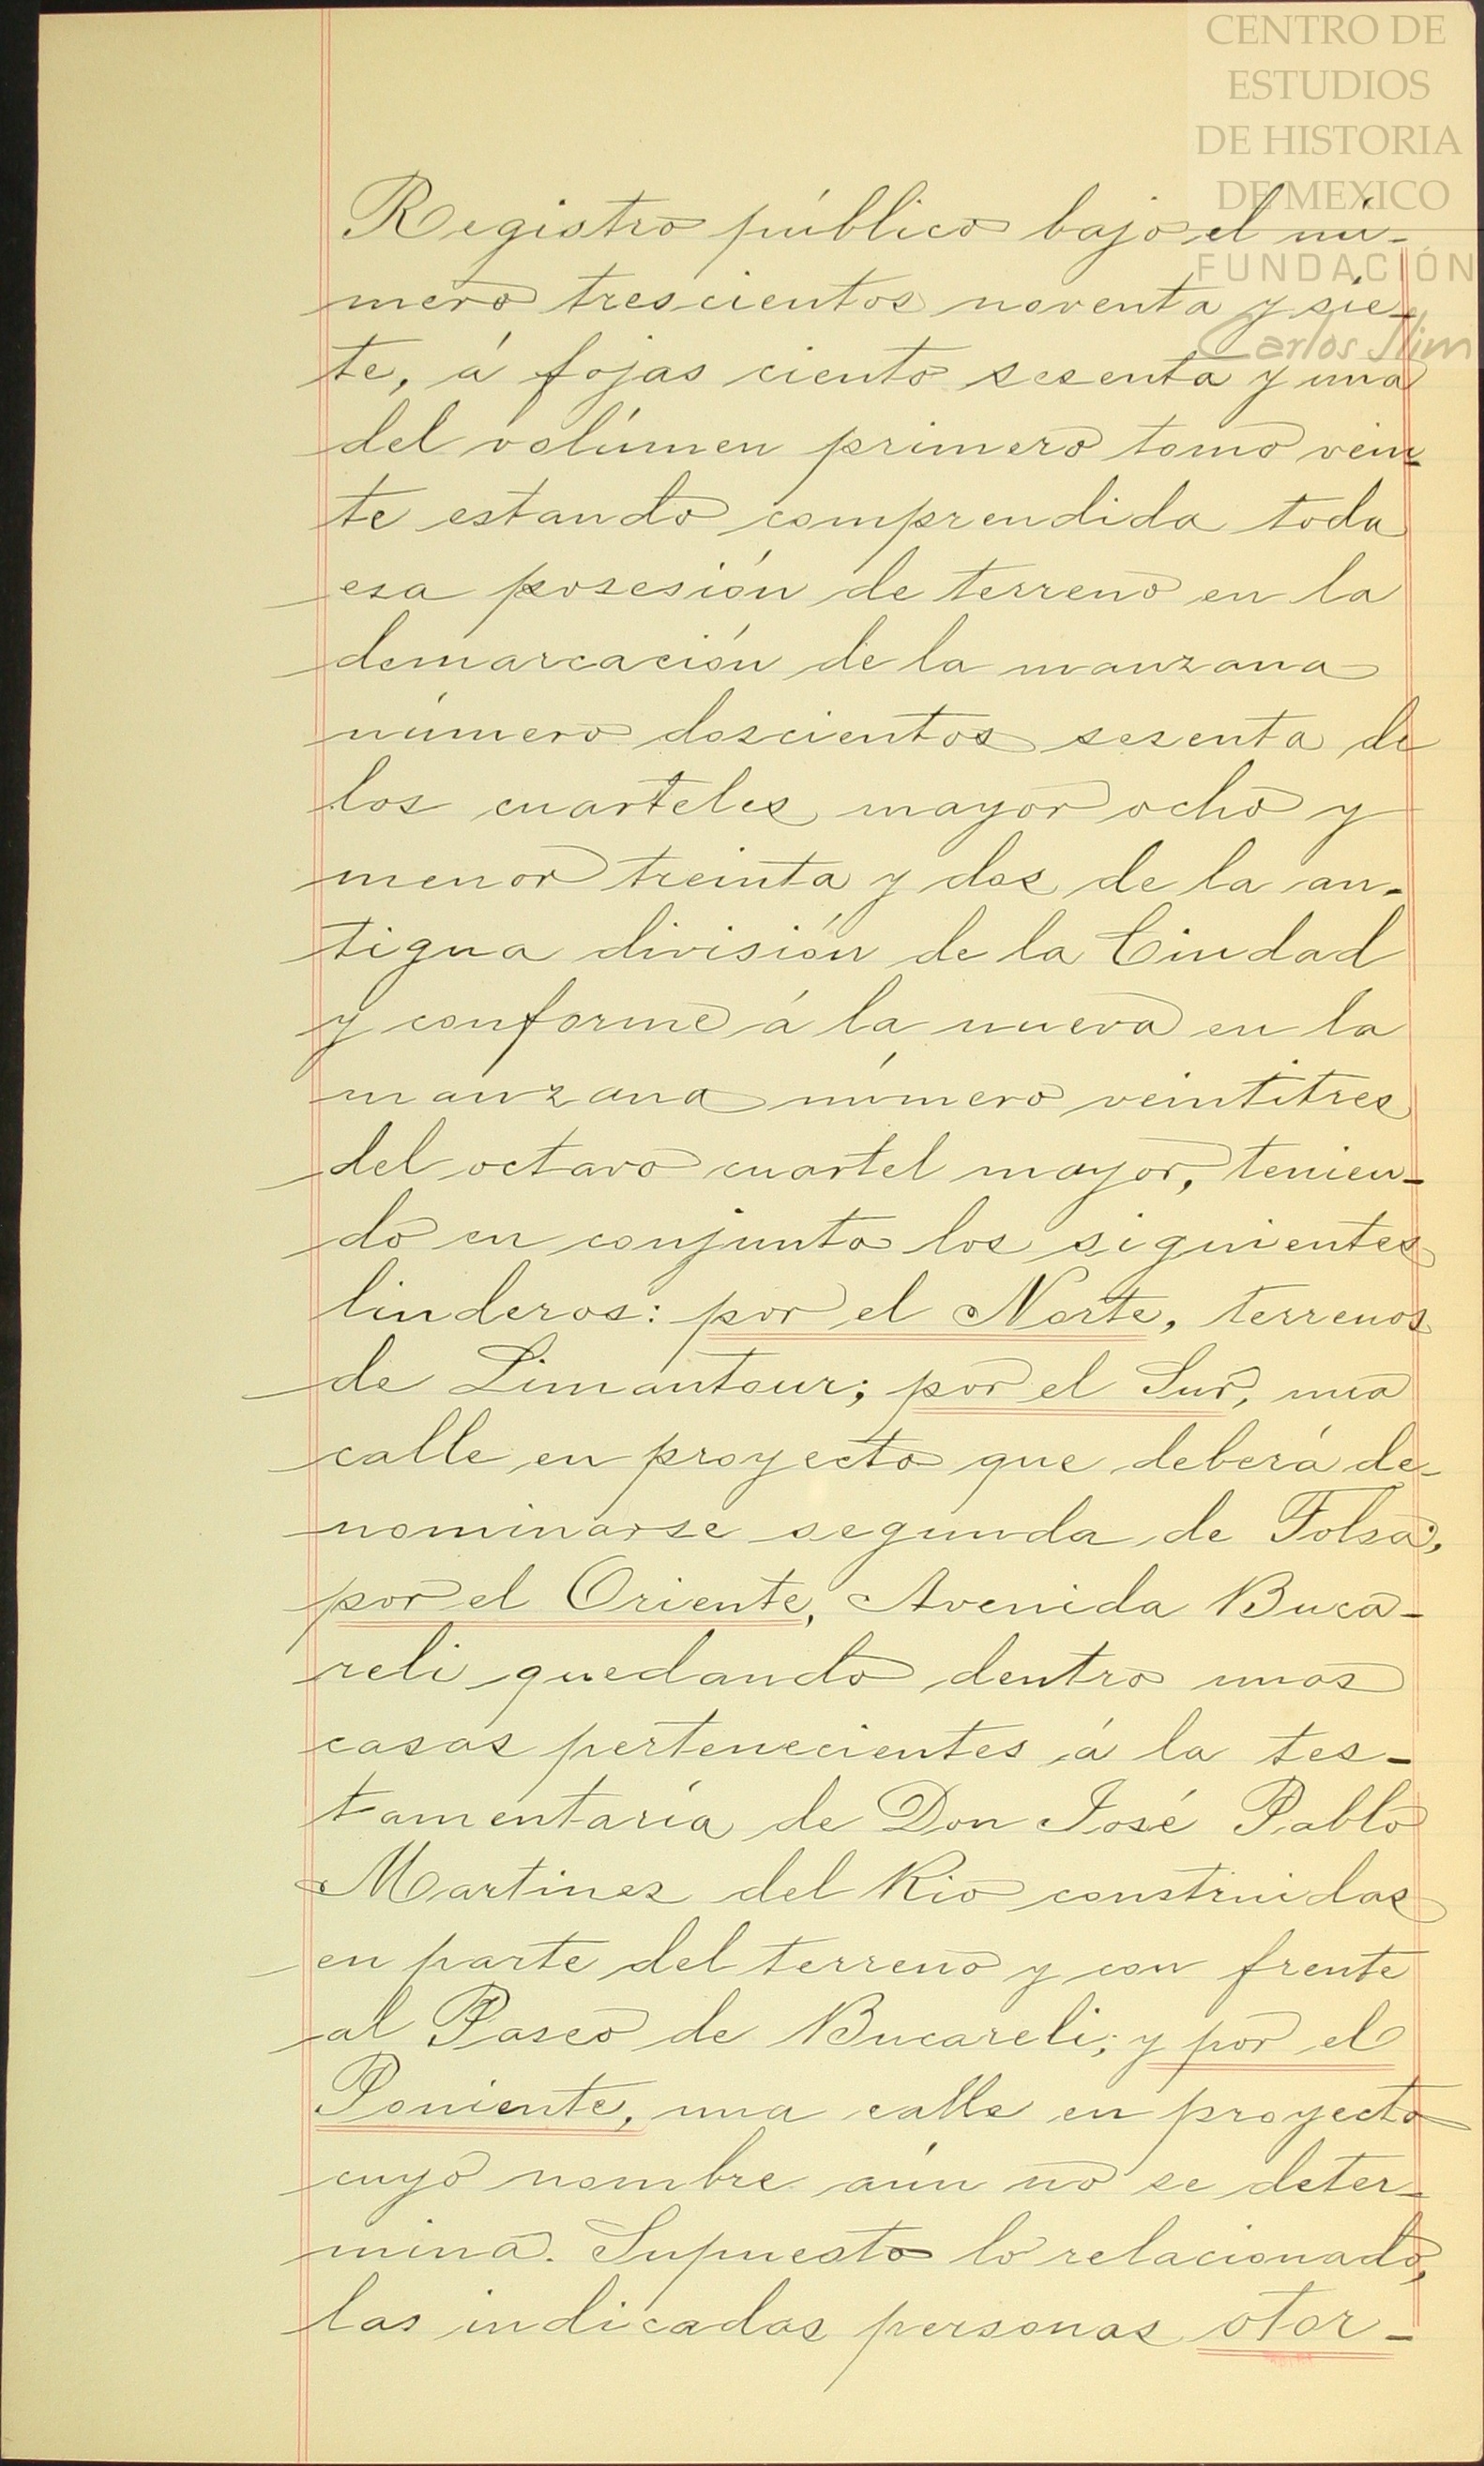 CENTRO DE
ESTUDIOS
DE HISTORIA
DE MEXICO
FUNDACIÓN
Carlos Slim
Registro público bajo el nú-
mero trescientos noventa y sie-
te, á fojas ciento sesenta y una
del volúmen primero tomo vein-
te estando comprendida toda
esa posesión de terreno en la
demarcación de la manzana
número doscientos sesenta de
los cuarteles mayor ocho y
menor treinta y dos de la an-
tigua división de la Ciudad
y conforme á la nueva en la
manzana número veintitres
del octavo cuartel mayor, tenien-
do en conjunto los siguientes
linderos: por el Norte, terrenos
de Limantour; por el Sur, una
calle en proyecto que deberá de-
nominarse segunda de Tolsa;
por el Oriente, Avenida Buca-
reli quedando dentro unas
casas pertenecientes á la tes-
tamentaría de Don José Pablo
Martinez del Rio construidas
en parte del terreno y con frente
al Paseo de Bucareli; y por el
Poniente, una calle en proyecto
cuyo nombre aún no se deter-
mina. Supuesto lo relacionado,
las indicadas personas otor-